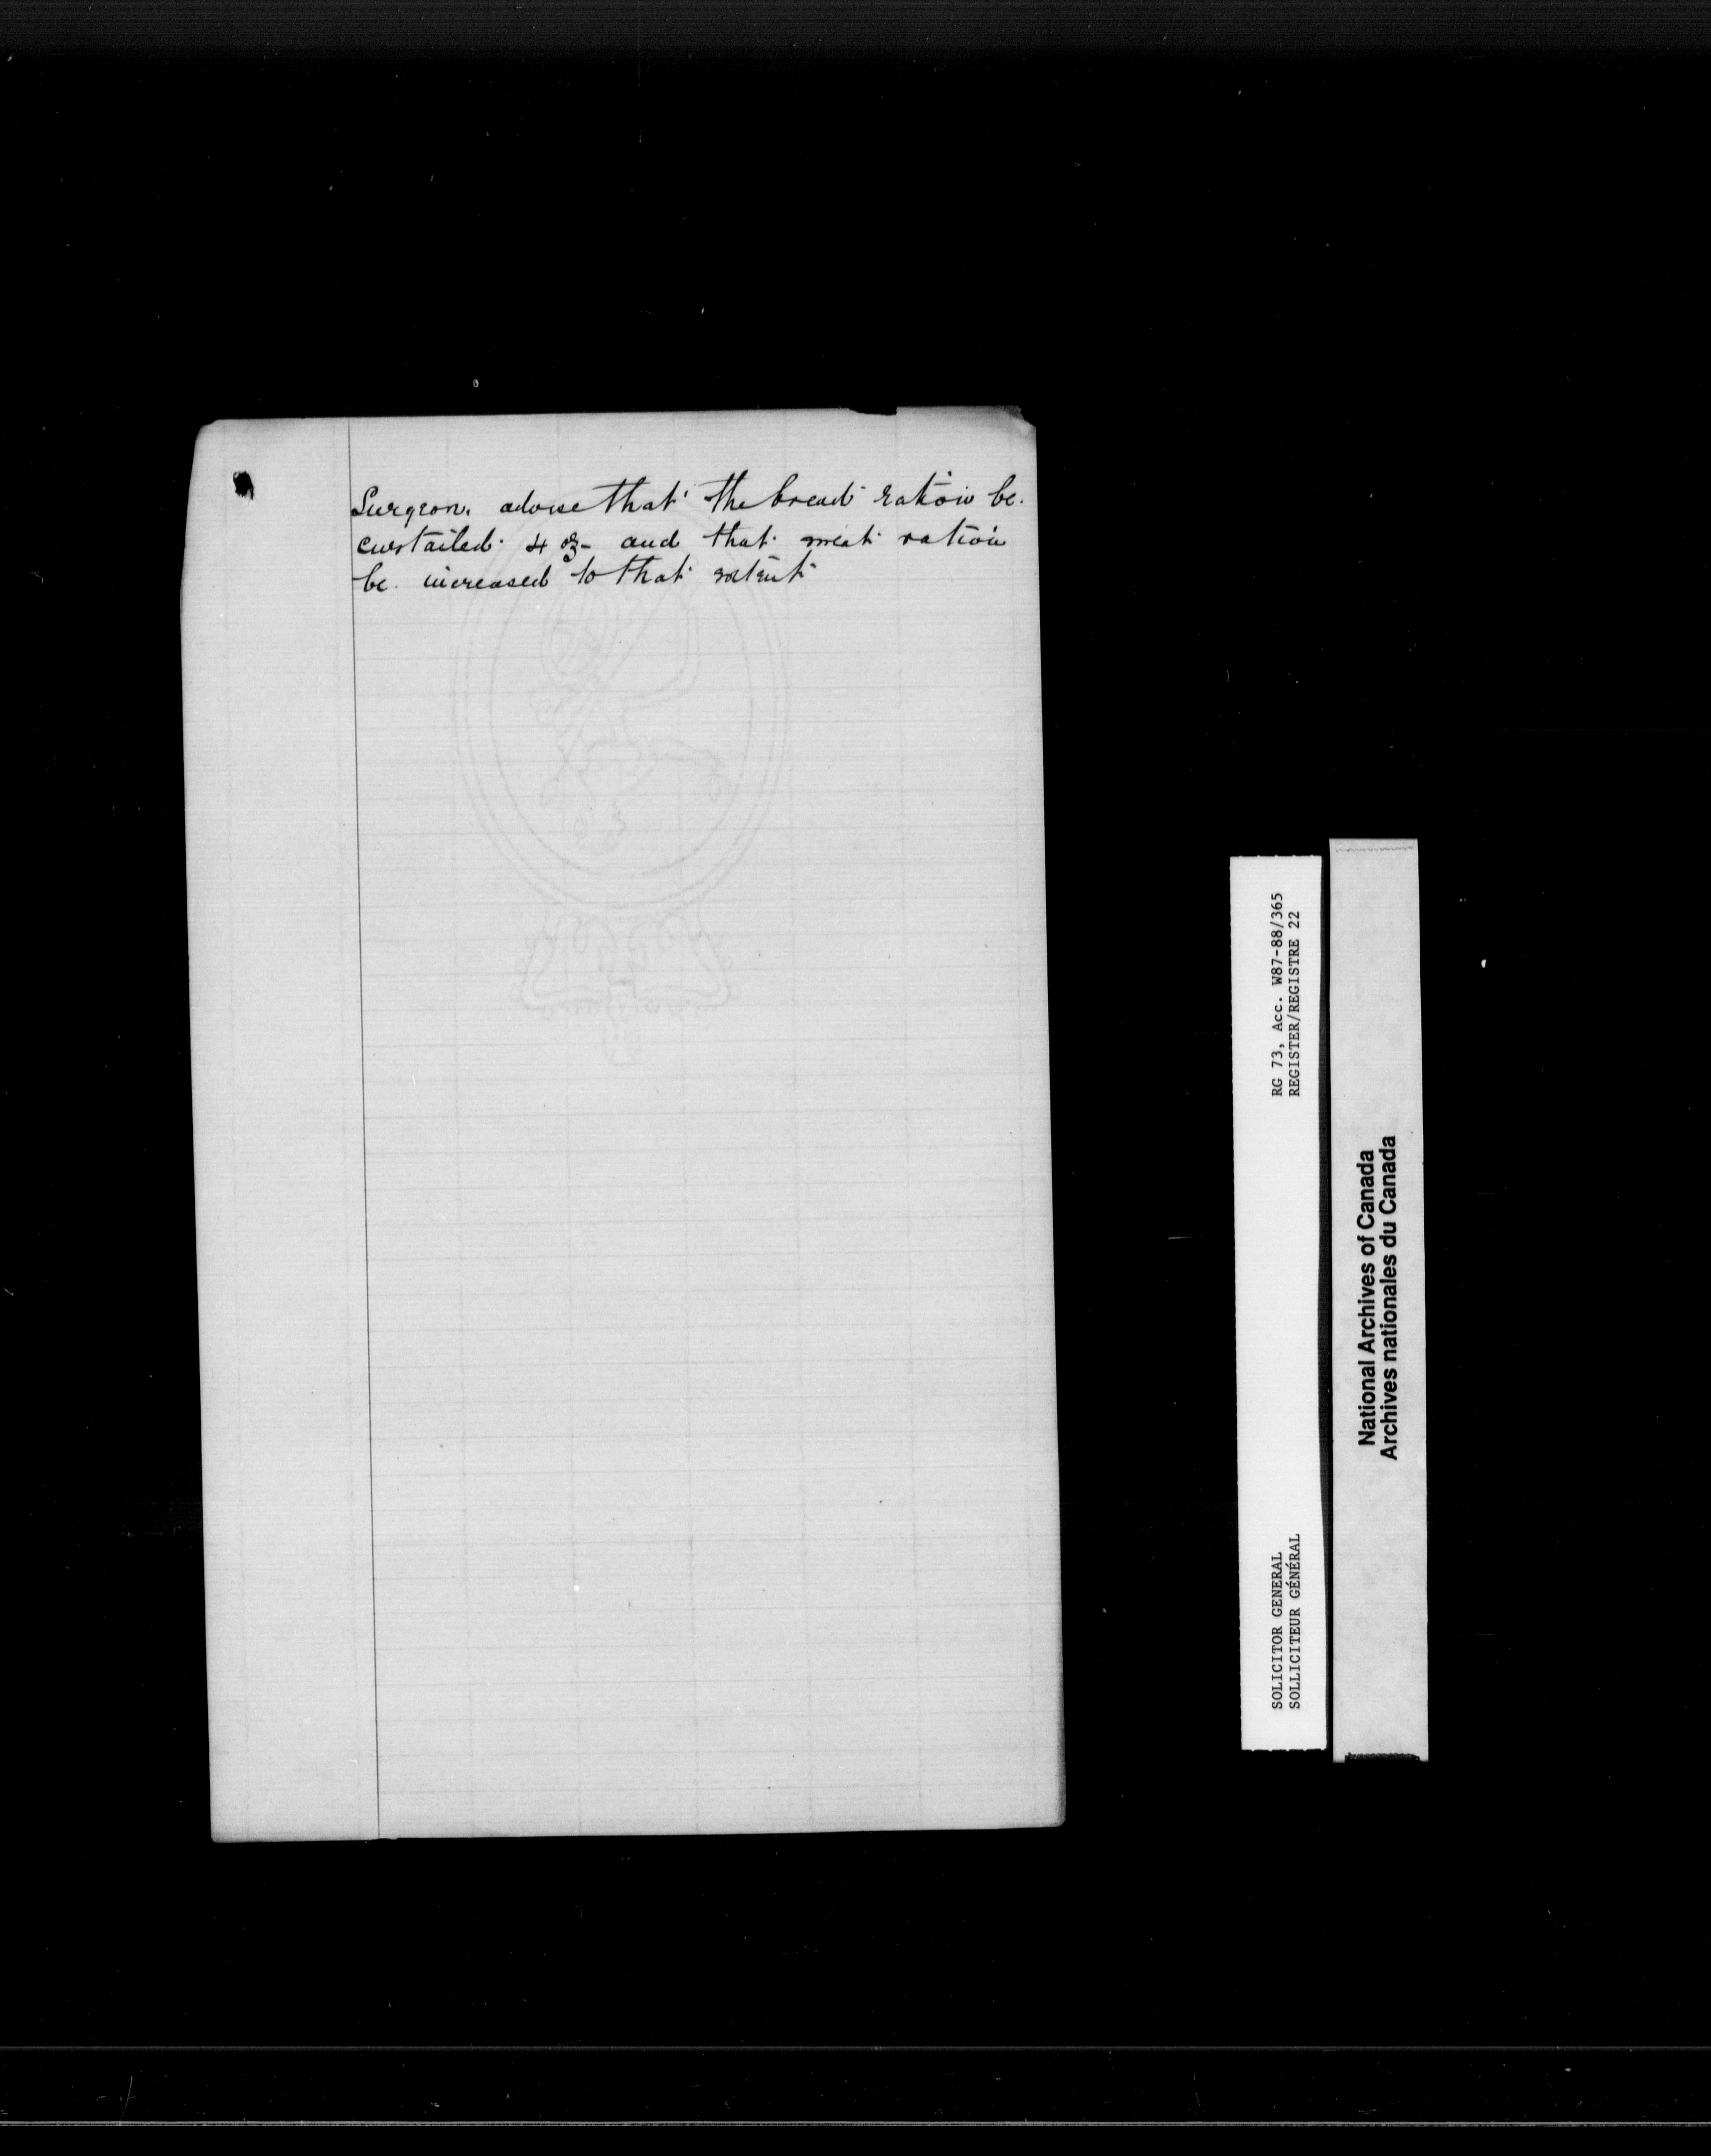 Surgeon, advise that the bread ration be
curtailed 4 oz - and that meat ration
be increased to that extent
RG 73, Acc. W87-88/365
REGISTER/REGISTRE 22
SOLICITOR GENERAL
SOLLICITEUR GÉNÉRAL
National Archives of Canada
Archives nationales du Canada